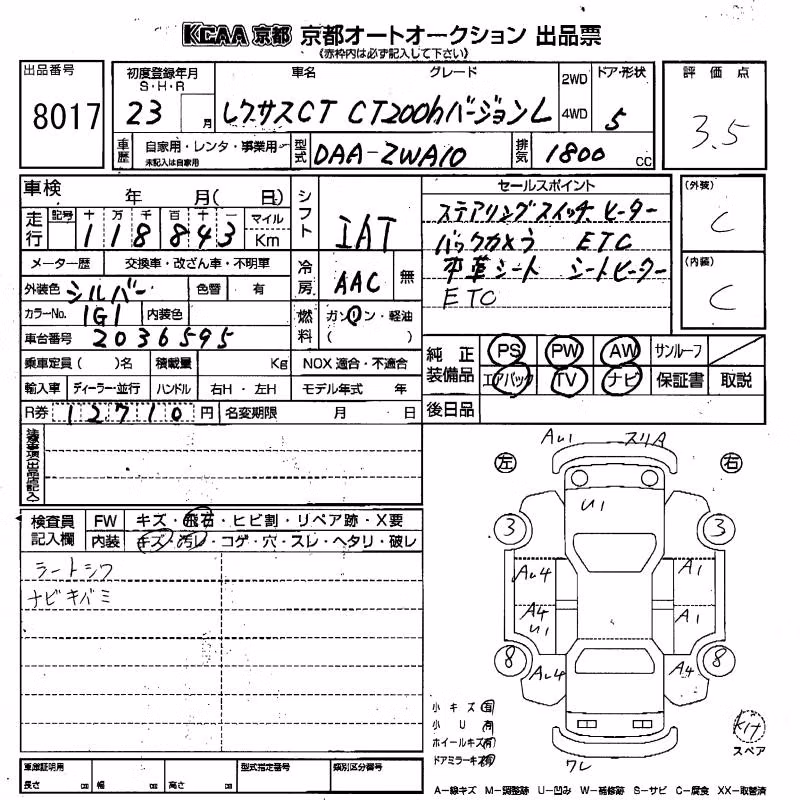 KCAA 京都 京都オートオークション 出品票
《赤枠内は必ず記入して下さい》
出品番号
8017
初度登録年月
S・H・R
23 月
車名 グレード
レクサスCT CT200hバージョンL
2WD
4WD
ドア・形状
5
評価点
3.5
車歴
自家用・レンタ・事業用
未記入は自家用
型式
DAA-ZWA10
排気
1800 CC
車検 年 月( 日)
走行
記号 十 万 千 百 十 一
118843
マイル
Km
メーター歴 交換車・改ざん車・不明車
外装色 シルバー 色替 有
カラーNo. 1G1 内装色
車台番号 2036595
乗車定員( )名 積載量 Kg NOX 適合・不適合
輸入車 ディーラー・並行 ハンドル 右H・左H モデル年式 年
R券 12710 円 名変期限 月 日
シフト
IAT
冷房
AAC 無
燃料
ガソリン・軽油
( )
セールスポイント
ステアリングスイッチ ヒーター
バックカメラ ETC
本革シート シートヒーター
ETC
(外装)
C
(内装)
C
純正装備品
PS PW AW サンルーフ
エアバック TV ナビ 保証書 取説
後日品
注意事項(出品店記入)
検査員記入欄
FW キズ・飛石・ヒビ割・リペア跡・X要
内装 キズ・汚レ・コゲ・穴・スレ・ヘタリ・破レ
シートシワ
ナビキバミ
左 右
AU1 スリA
U1
3 3
AU4 A1
A4 A1
U1
8 8
AU4 A4
ワレ
小キズ 有
小U 有
ホイールキズ 有
ドアミラーキズ 有
Kit
スペア
車庫証明用
長さ cm 幅 cm 高さ cm
型式指定番号 類別区分番号
A−線キズ M−調整跡 U−凹み W−補修跡 S−サビ C−腐食 XX−取替済